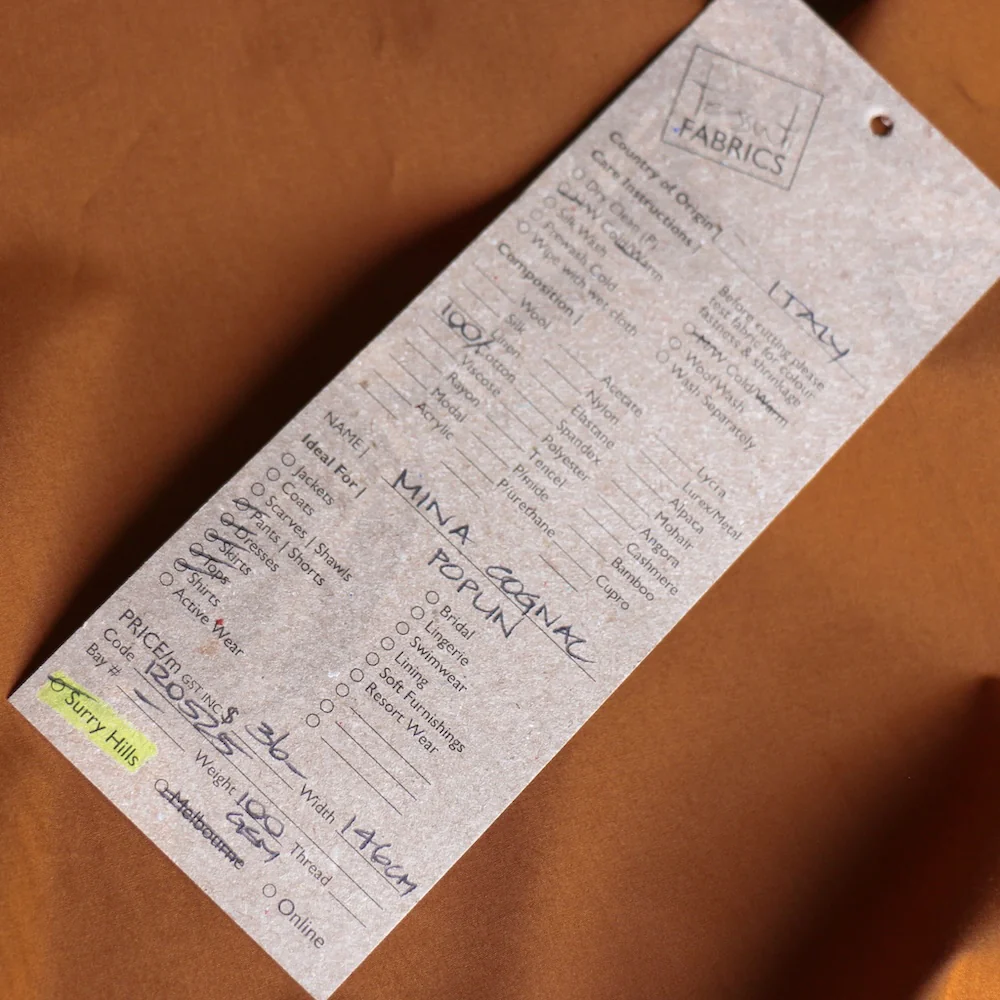 Tessuti
FABRICS
Country of Origin | ITALY
Care Instructions |
Dry Clean (P)
M/W Cold/Warm
Silk Wash
Prewash Cold
Wipe with wet cloth
Before cutting please
test fabric for colour
fastness & shrinkage
H/W Cold/Warm
Wool Wash
Wash Separately
Composition |
Wool
Silk
Linen
100% Cotton
Viscose
Rayon
Modal
Acrylic
Acetate
Nylon
Elastane
Spandex
Polyester
Tencel
P/mide
P/urethane
Lycra
Lurex/Metal
Alpaca
Mohair
Angora
Cashmere
Bamboo
Cupro
NAME | MINA COGNAC
POPLIN
Ideal For |
Jackets
Coats
Scarves | Shawls
Pants | Shorts
Dresses
Skirts
Tops
Shirts
Active Wear
Bridal
Lingerie
Swimwear
Lining
Soft Furnishings
Resort Wear
PRICE/m GST INC $ 36-
Code 120525 Width 146CM
Bay # Weight 100 GSM Thread
Surry Hills
Melbourne
Online